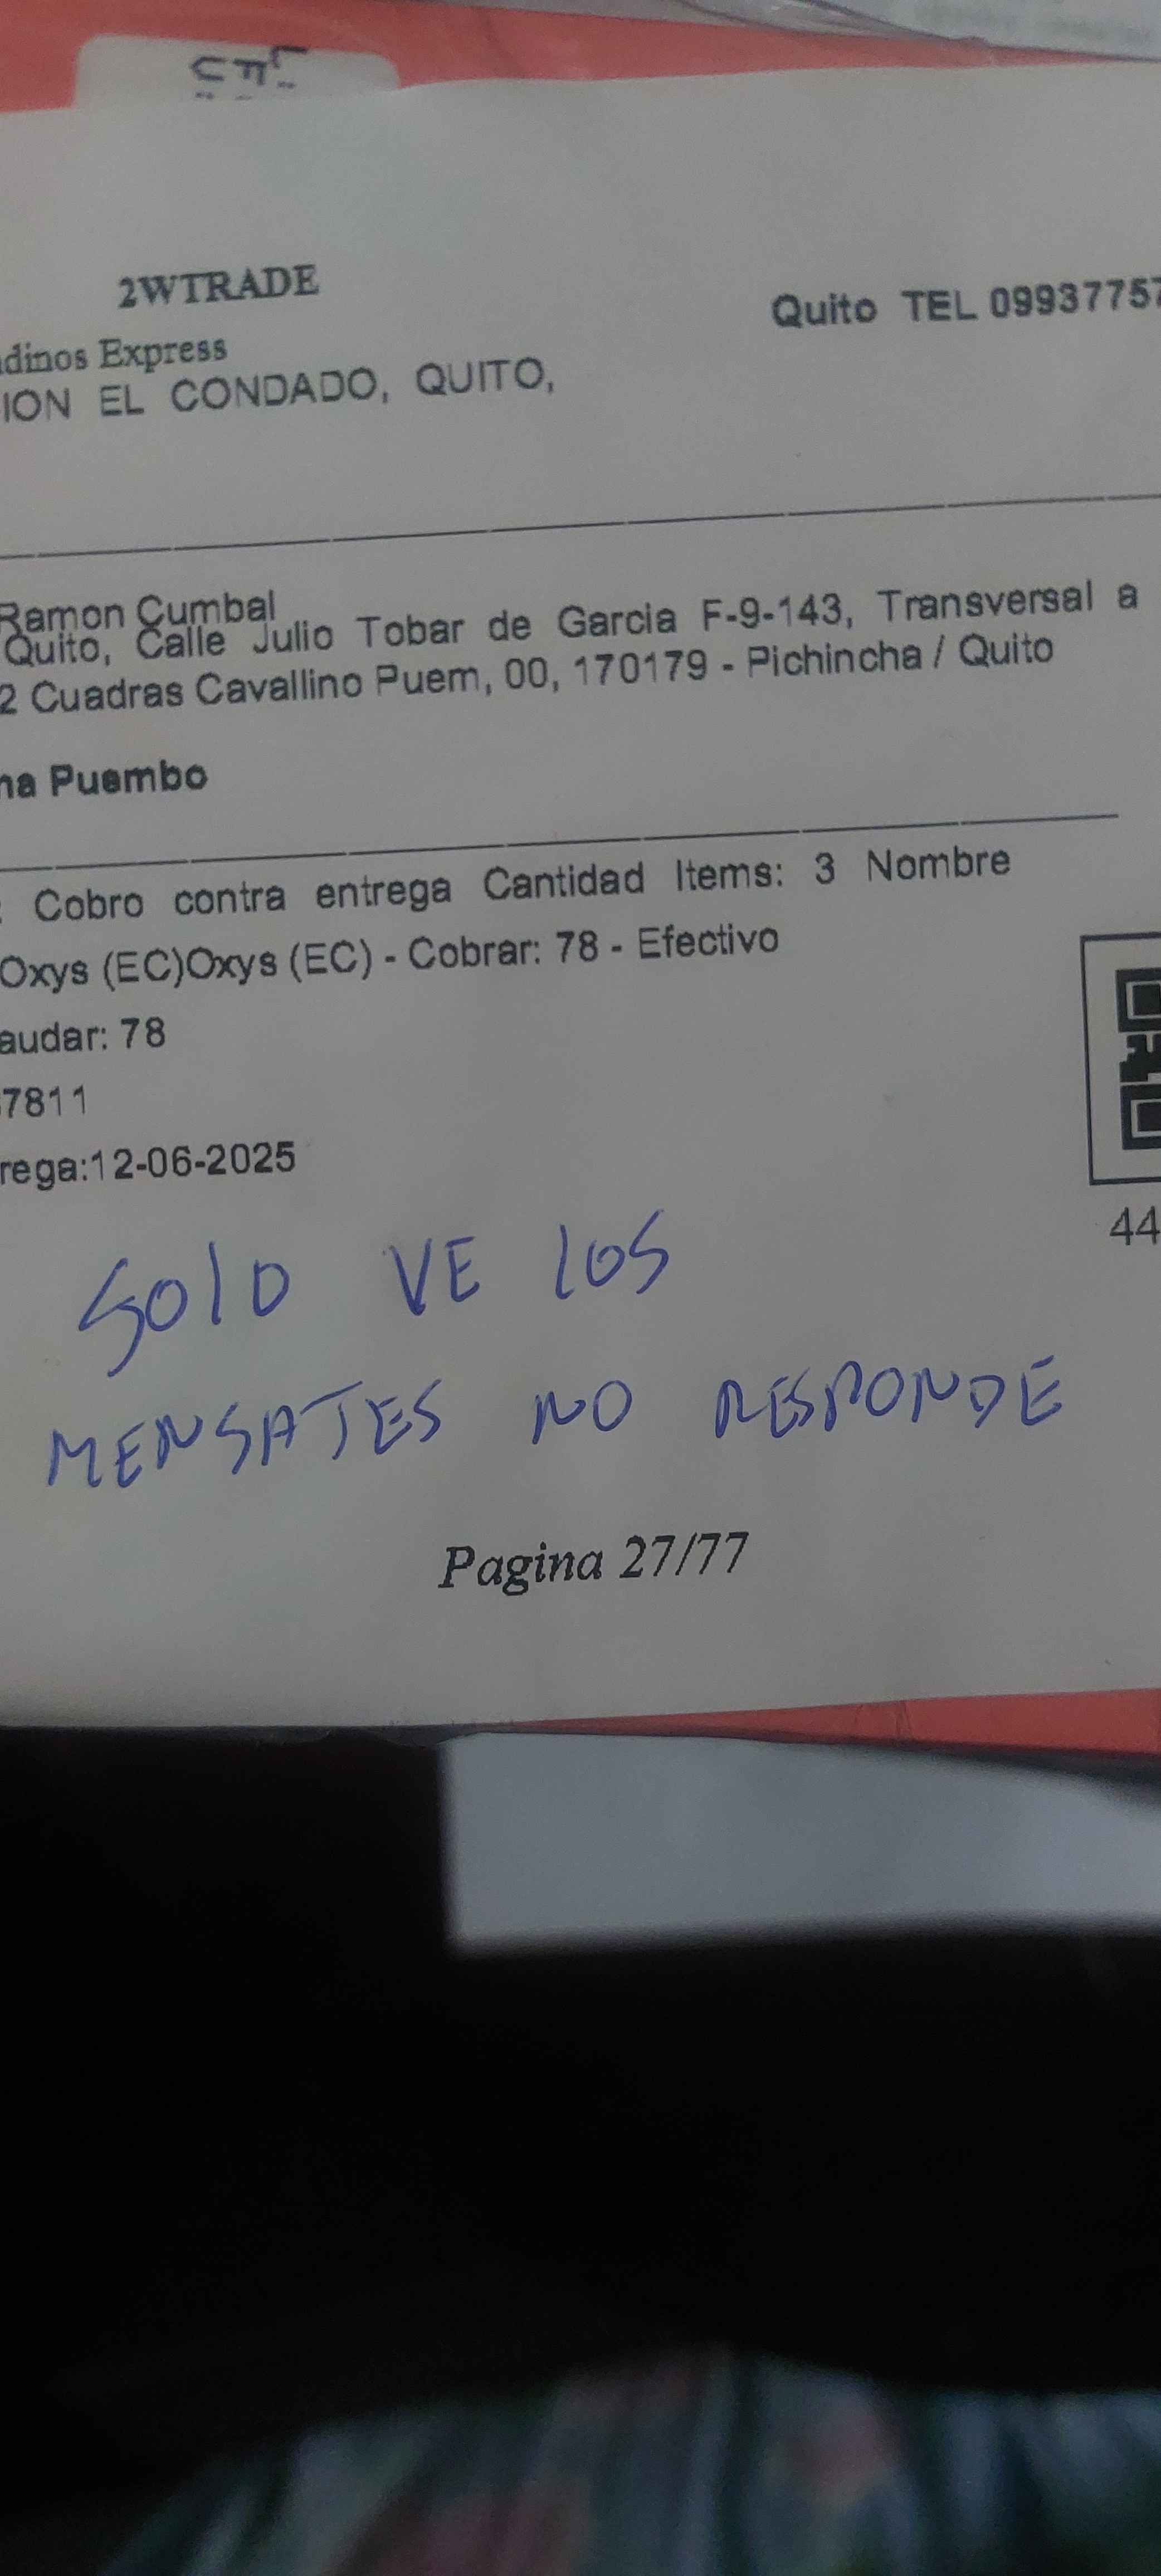 2WTRADE
Quito TEL 09937757
dinos Express
ION EL CONDADO, QUITO,
Ramon Cumbal
Quito, Calle Julio Tobar de Garcia F-9-143, Transversal a
2 Cuadras Cavallino Puem, 00, 170179 - Pichincha / Quito
na Puembo
: Cobro contra entrega Cantidad Items: 3 Nombre
Oxys (EC)Oxys (EC) - Cobrar: 78 - Efectivo
audar: 78
7811
rega:12-06-2025
44
SOLO VE LOS
MENSAJES NO RESPONDE
Pagina 27/77